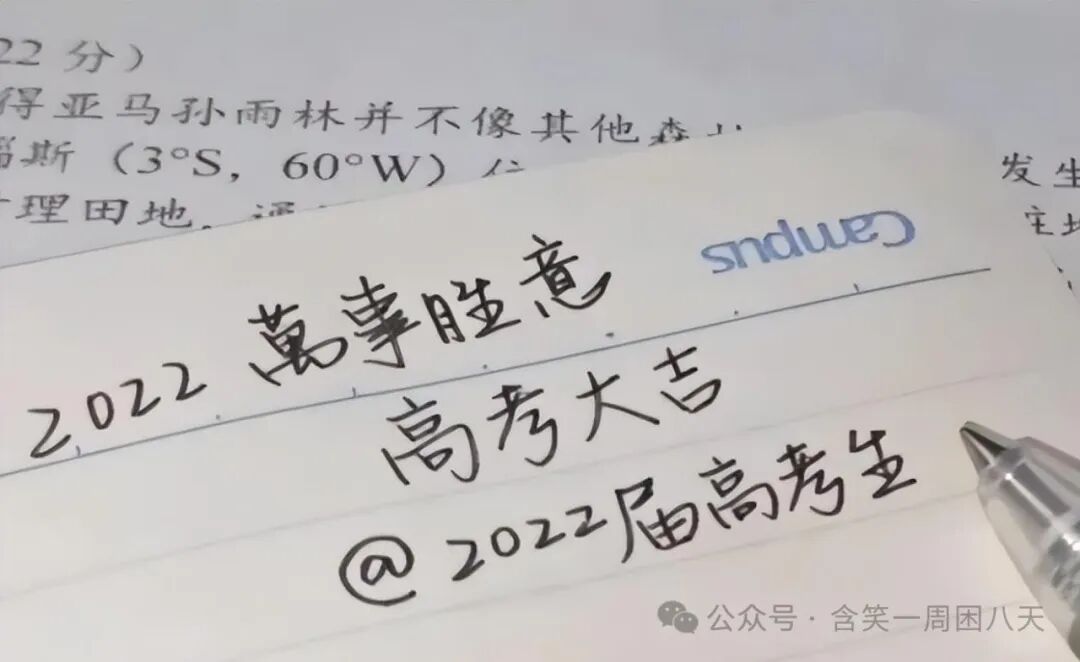 22 分）
得亚马孙雨林并不像其他森
斯（3°S，60°W）位
理田地，通
发生
Campus
2022 萬事胜意
高考大吉
@2022届高考生
公众号·含笑一周困八天